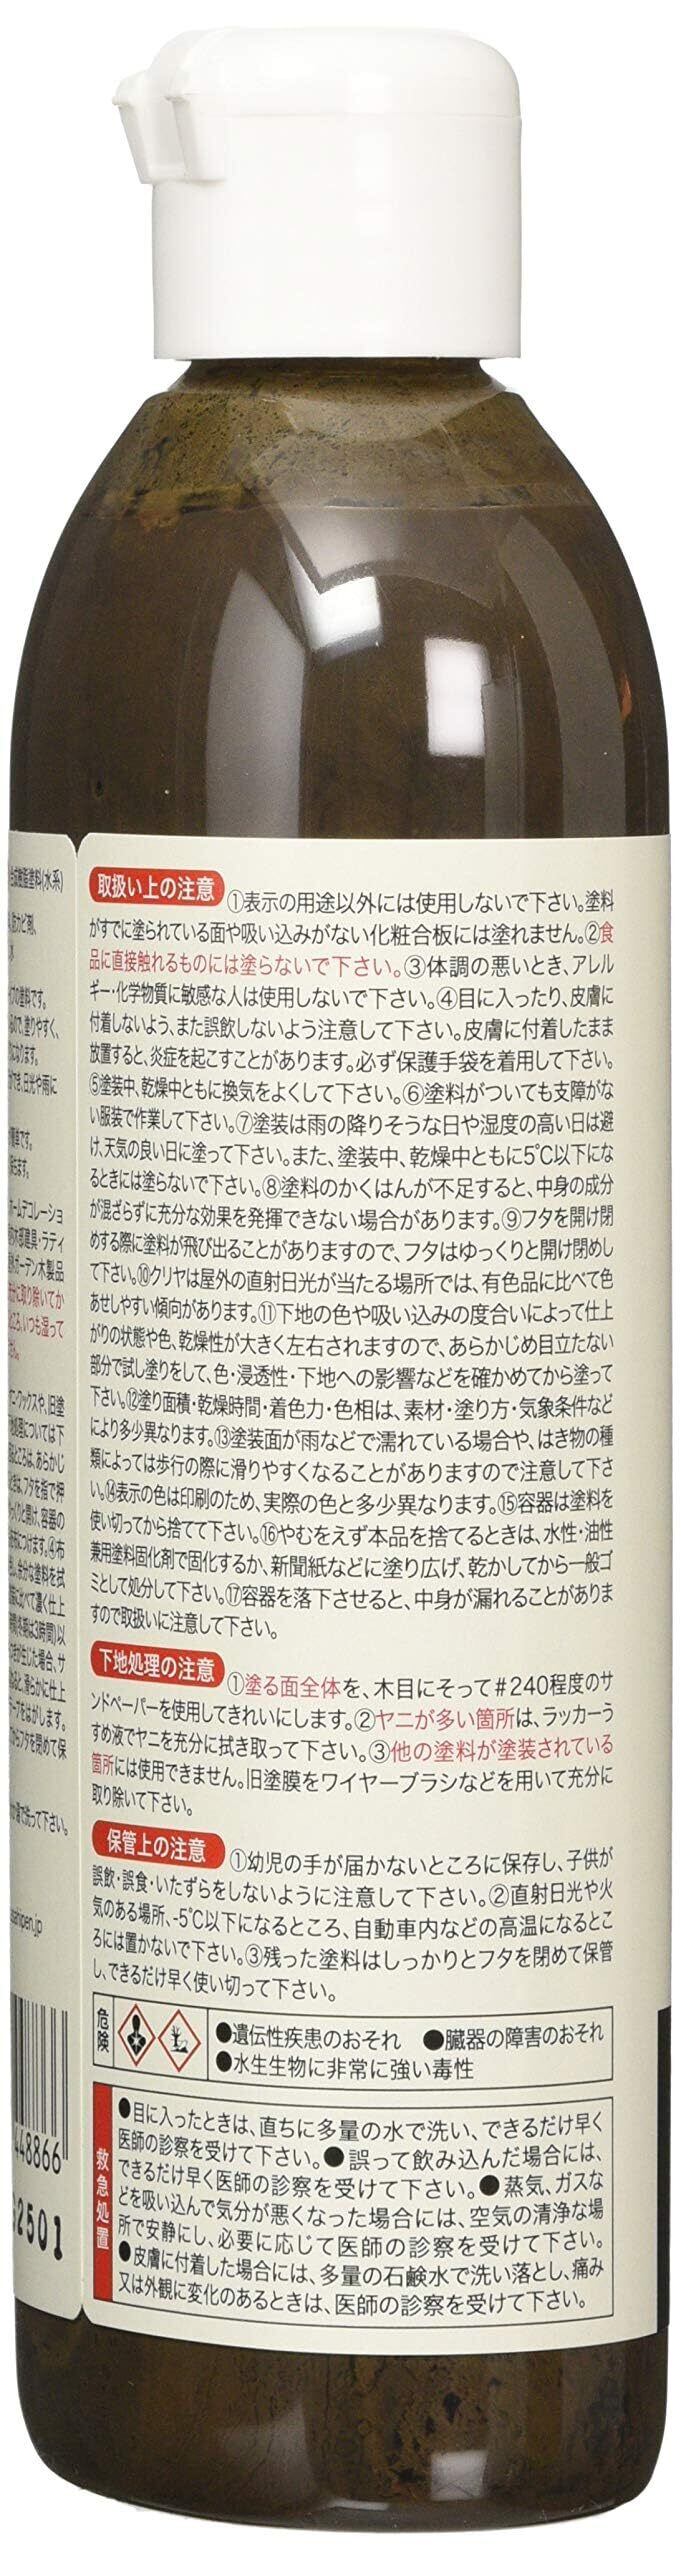 合成樹脂塗料(水系)
防カビ剤、
イプの塗料です。
るので、塗りやすく、
になります。
でき、日光や雨に
簡単です。
ホームデコレーショ
木部建具・ラティ
ガーデン木製品
分に取り除いてか
ところ、いつも湿って
ニ・ワックスや、旧塗
処理については下
ところは、あらかじ
きは、フタを指で押
っくりと開け、容器の
④布
余分な塗料を拭
に比べて濃く仕上
(冬期は3時間)以
が生じた場合、サ
ると、滑らかに仕上
ープをはがします。
フタを閉めて保
湯で洗って下さい。
asahipen.jp
448866
32501
取扱い上の注意 ①表示の用途以外には使用しないで下さい。塗料
がすでに塗られている面や吸い込みがない化粧合板には塗れません。②食
品に直接触れるものには塗らないで下さい。③体調の悪いとき、アレル
ギー・化学物質に敏感な人は使用しないで下さい。④目に入ったり、皮膚に
付着しないよう、また誤飲しないよう注意して下さい。皮膚に付着したまま
放置すると、炎症を起こすことがあります。必ず保護手袋を着用して下さい。
⑤塗装中、乾燥中ともに換気をよくして下さい。⑥塗料がついても支障がな
い服装で作業して下さい。⑦塗装は雨の降りそうな日や湿度の高い日は避
け、天気の良い日に塗って下さい。また、塗装中、乾燥中ともに5℃以下にな
るときには塗らないで下さい。⑧塗料のかくはんが不足すると、中身の成分
が混ざらずに充分な効果を発揮できない場合があります。⑨フタを開け閉
めする際に塗料が飛び出ることがありますので、フタはゆっくりと開け閉めし
て下さい。⑩クリヤは屋外の直射日光が当たる場所では、有色品に比べて色
あせしやすい傾向があります。⑪下地の色や吸い込みの度合いによって仕上
がりの状態や色、乾燥性が大きく左右されますので、あらかじめ目立たない
部分で試し塗りをして、色・浸透性・下地への影響などを確かめてから塗って
下さい。⑫塗り面積・乾燥時間・着色力・色相は、素材・塗り方・気象条件など
により多少異なります。⑬塗装面が雨などで濡れている場合や、はき物の種
類によっては歩行の際に滑りやすくなることがありますので注意して下さ
い。⑭表示の色は印刷のため、実際の色と多少異なります。⑮容器は塗料を
使い切ってから捨てて下さい。⑯やむをえず本品を捨てるときは、水性・油性
兼用塗料固化剤で固化するか、新聞紙などに塗り広げ、乾かしてから一般ゴ
ミとして処分して下さい。⑰容器を落下させると、中身が漏れることがありま
すので取扱いに注意して下さい。
下地処理の注意 ①塗る面全体を、木目にそって#240程度のサ
ンドペーパーを使用してきれいにします。②ヤニが多い箇所は、ラッカーう
すめ液でヤニを充分に拭き取って下さい。③他の塗料が塗装されている
箇所には使用できません。旧塗膜をワイヤーブラシなどを用いて充分に
取り除いて下さい。
保管上の注意 ①幼児の手が届かないところに保存し、子供が
誤飲・誤食・いたずらをしないように注意して下さい。②直射日光や火
気のある場所、-5℃以下になるところ、自動車内などの高温になるとこ
ろには置かないで下さい。③残った塗料はしっかりとフタを閉めて保管
し、できるだけ早く使い切って下さい。
危険
●遺伝性疾患のおそれ ●臓器の障害のおそれ
●水生生物に非常に強い毒性
救急処置
●目に入ったときは、直ちに多量の水で洗い、できるだけ早く
医師の診察を受けて下さい。●誤って飲み込んだ場合には、
できるだけ早く医師の診察を受けて下さい。●蒸気、ガスな
どを吸い込んで気分が悪くなった場合には、空気の清浄な場
所で安静にし、必要に応じて医師の診察を受けて下さい。
●皮膚に付着した場合には、多量の石鹸水で洗い落とし、痛み
又は外観に変化のあるときは、医師の診察を受けて下さい。